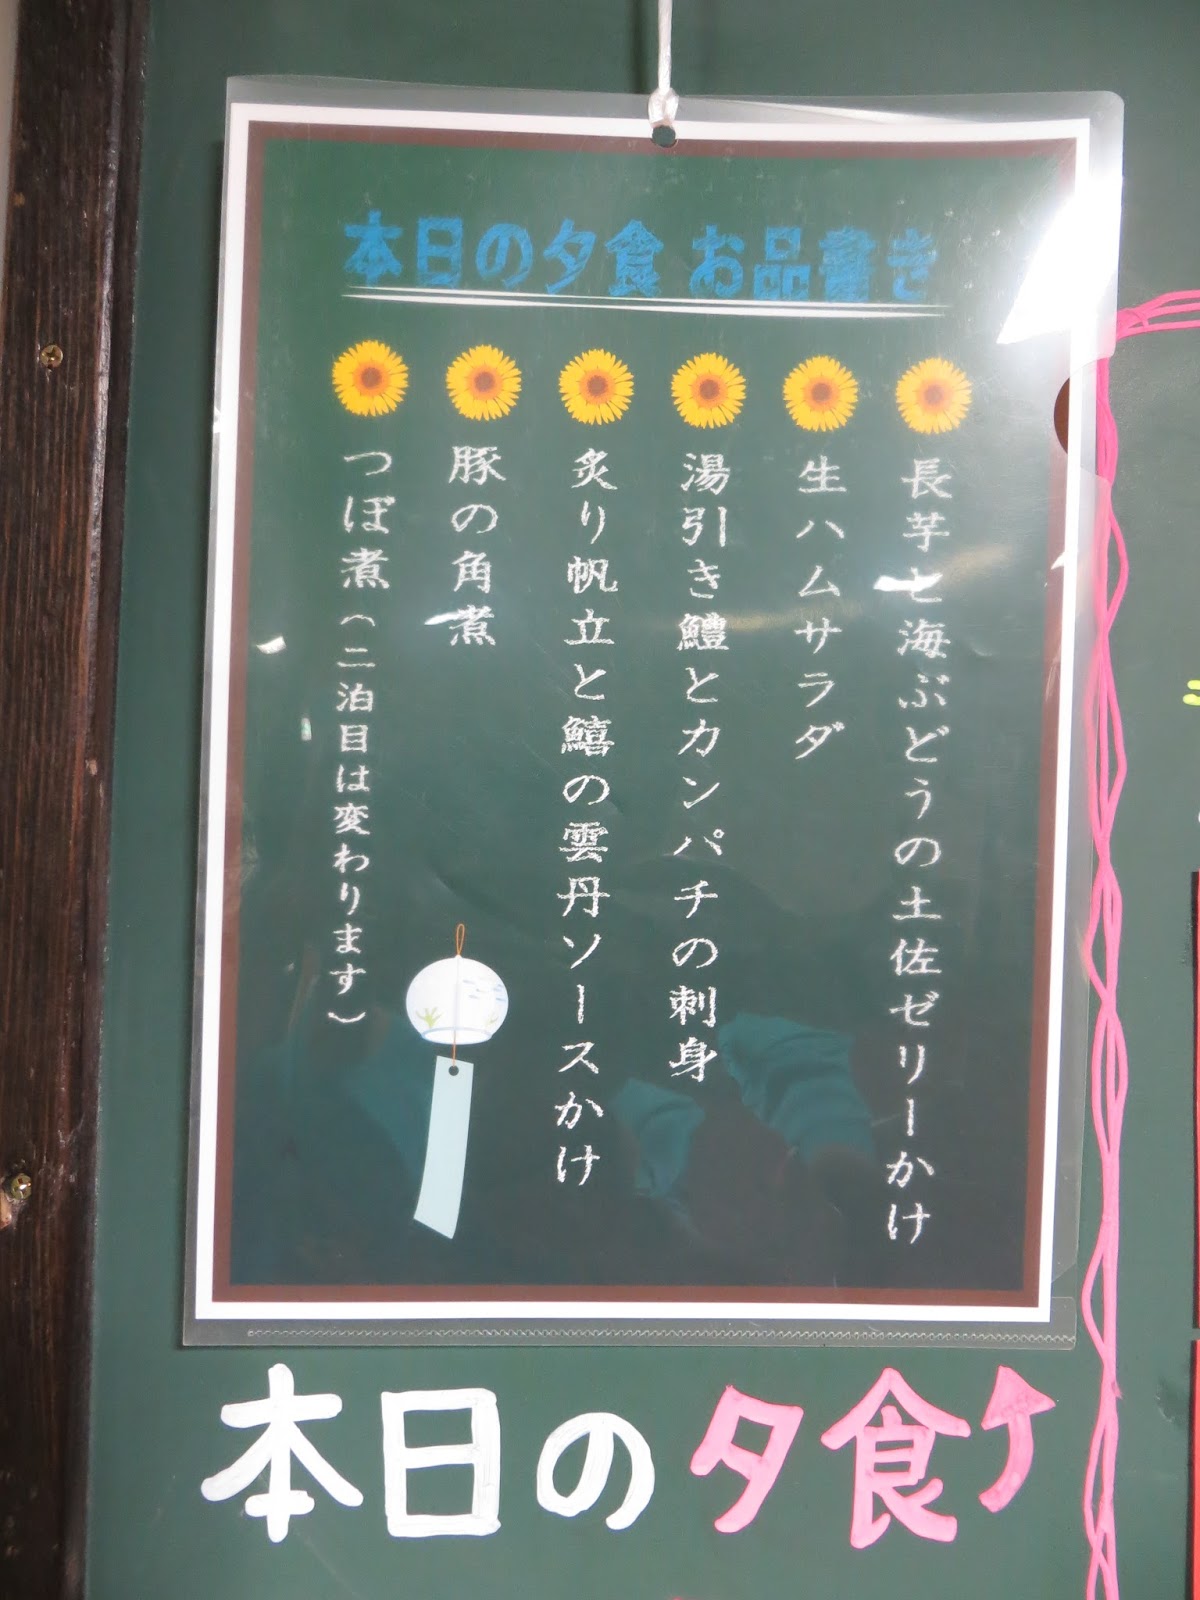 本日の夕食 お品書き
長芋と海ぶどうの土佐ゼリーかけ
生ハムサラダ
湯引き鱧とカンパチの刺身
炙り帆立と鱚の雲丹ソースかけ
豚の角煮
つぼ煮(二泊目は変わります)
本日の夕食